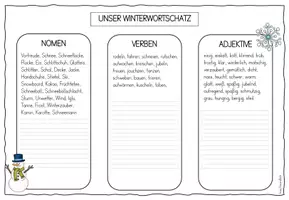 UNSER WINTERWORTSCHATZ
NOMEN
Vorfreude, Schnee, Schneeflocke,
Flocke, Eis, Schlittschuh, Glatteis,
Schlitten, Schal, Decke, Jacke,
Handschuhe, Stiefel, Ski,
Snowboard, Kakao, Früchtetee,
Schneeball, Schneeballschlacht,
Sturm, Unwetter, Wind, Iglu,
Tanne, Frost, Winterzauber,
Kamin, Karotte, Schneemann
VERBEN
rodeln, fahren, schneien, rutschen,
aufwachen, kreischen, jubeln,
freuen, jauchzen, tanzen,
schweben, bauen, frieren,
aufwärmen, kuscheln, füllen,
ADJEKTIVE
eisig, eiskalt, kalt, klirrend, kuh,
frostig, klar, winterlich, matschig,
verzaubert, gemütlich, dicht,
nass, feucht, schwer, warm,
glatt, weiß, spaßig, jubelnd,
aufregend, spaßig, schmutzig,
grau, hungrig, eisig, steil